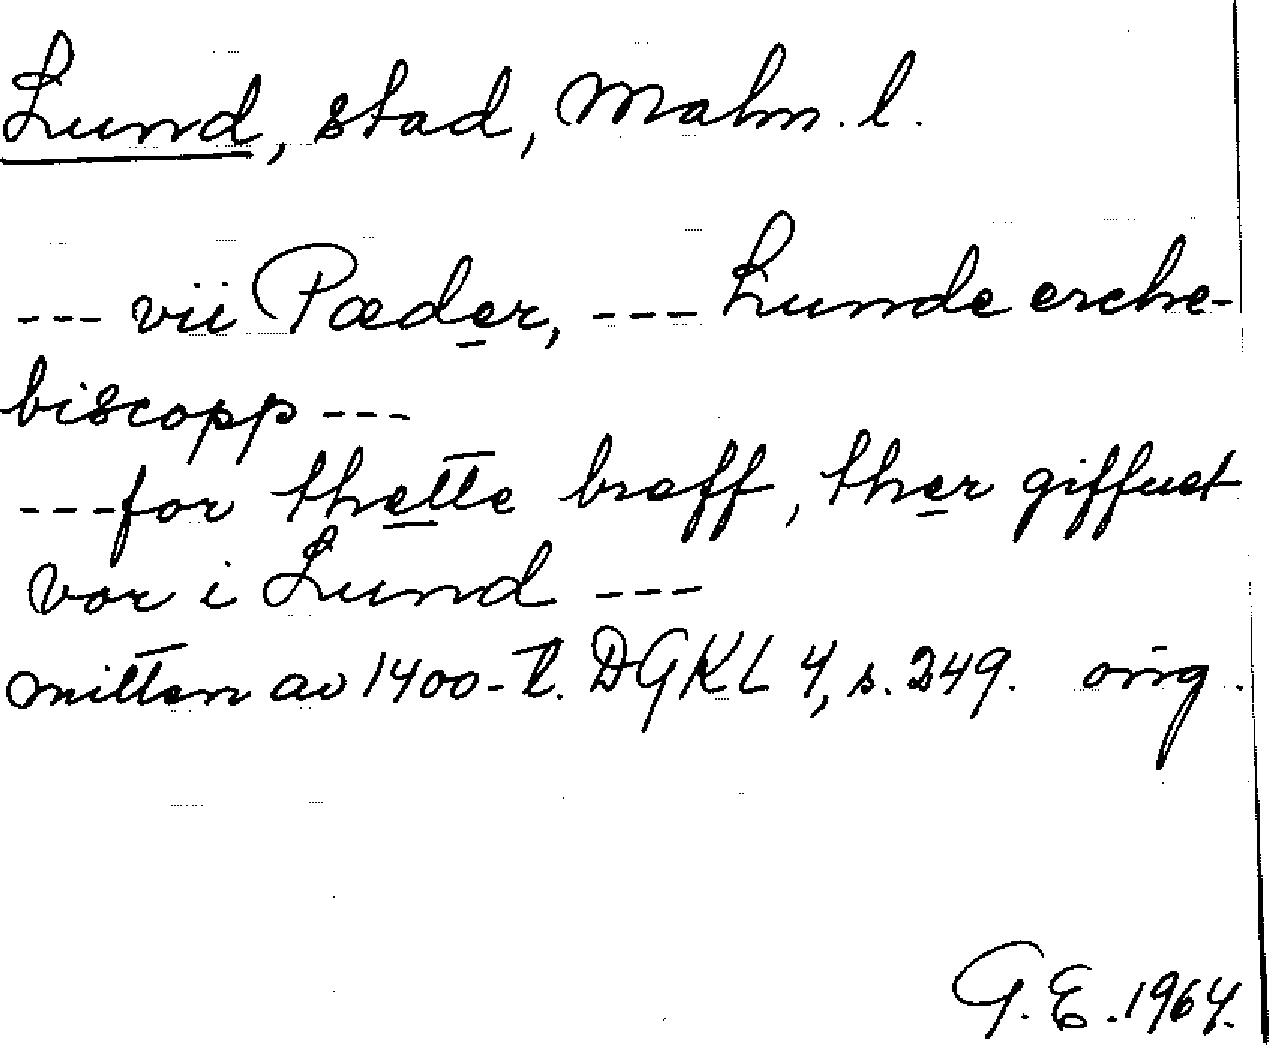 Lund, stad, Malm. l.
--- vii Pæder, --- Lunde erche-
biscopp ---
--- for thette breff, ther giffuet
vor i Lund ---
mitten av 1400-t. DGKL 4, s. 249. orig.
G. E. 1964.